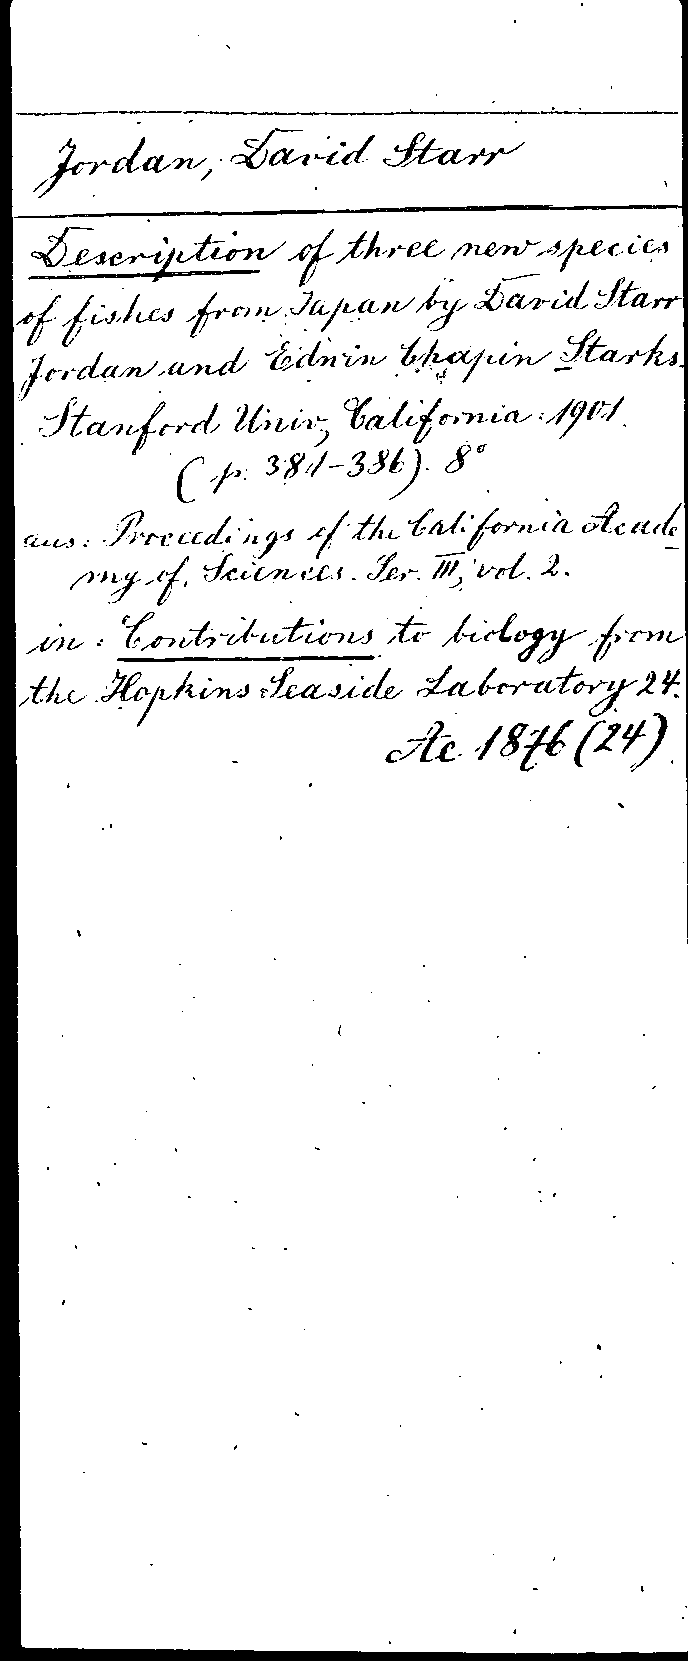 Jordan, David Starr
Description of three new species
of fishes from Japan by David Starr
Jordan and Edwin Chapin Starks.
Stanford Univ., California. 1901.
(p. 381-386). 8°
aus: Proceedings of the California Acade-
my of Sciences. Ser. III, vol. 2.
in: Contributions to biology from
the Hopkins Seaside Laboratory 24.
Ac 1876 (24)